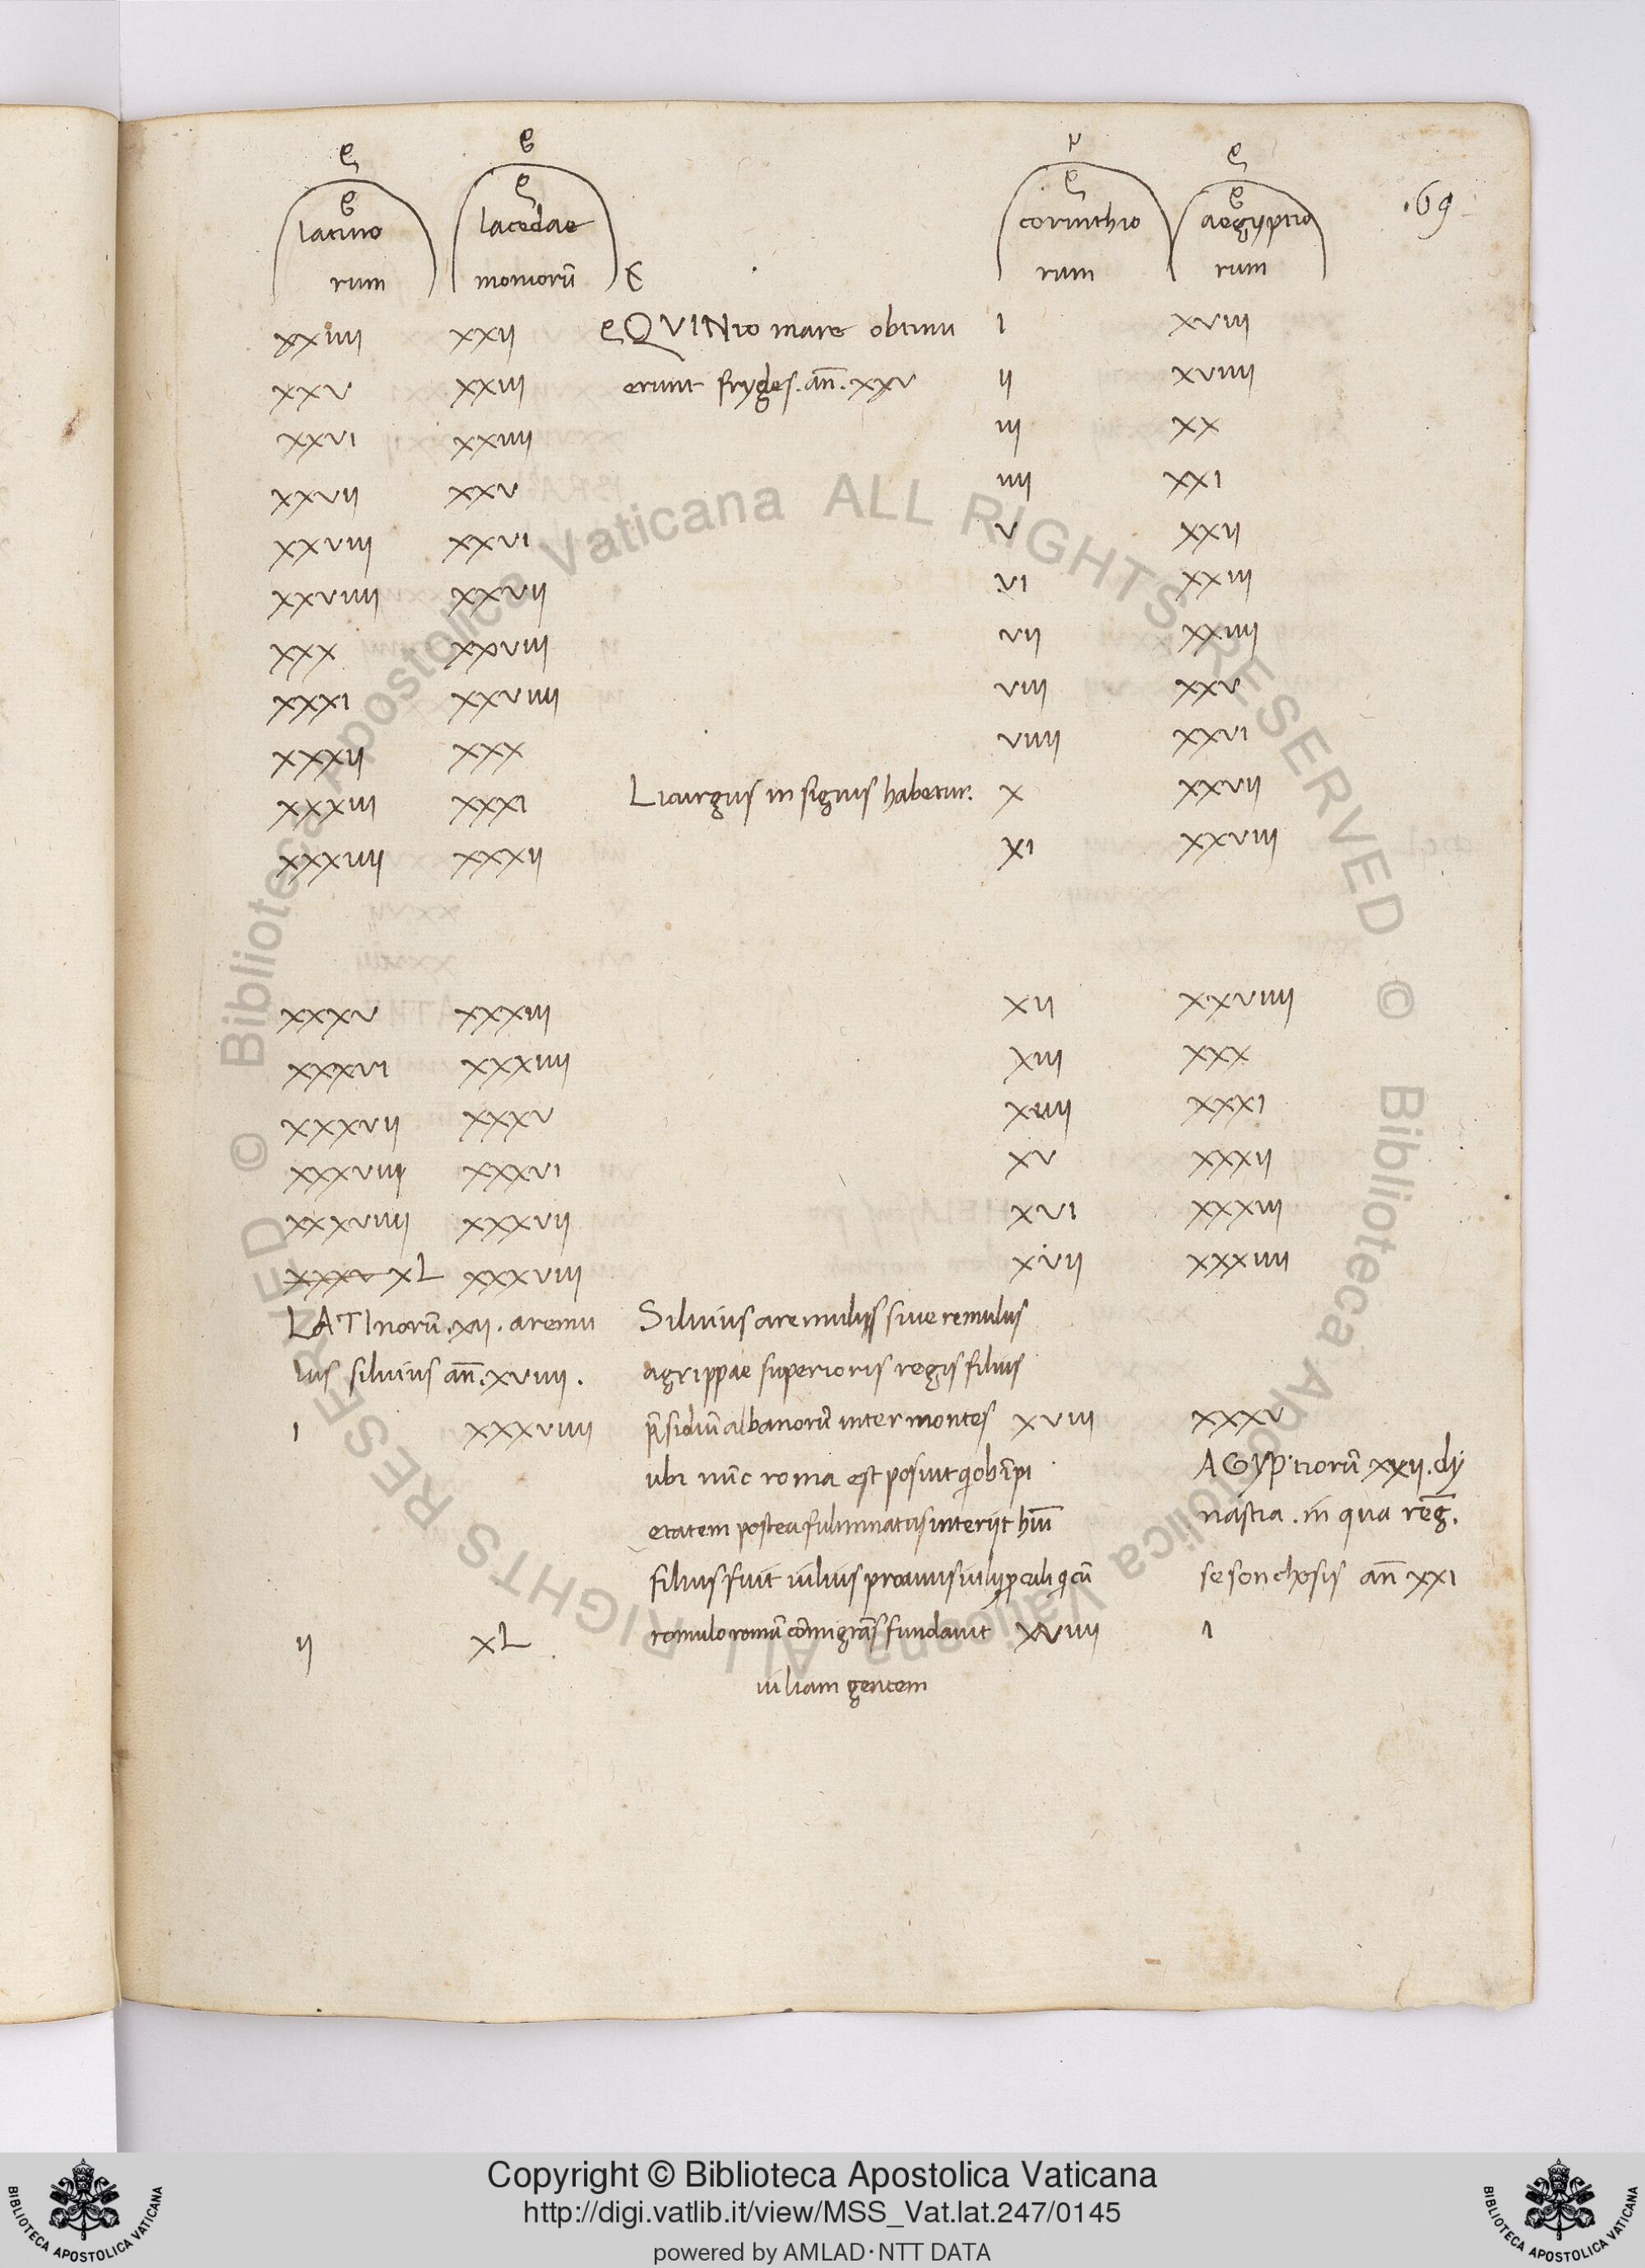 .69
latino lacedae corinthio aegyptio
rum monioru̅ rum rum
XXIIII XXII EQVINto mare obtinu I XVIII
XXV XXIII erunt fryges. an̅. XXV II XVIIII
XXVI XXIIII III XX
XXVII XXV IIII XXI
XXVIII XXVI V XXII
XXVIIII XXVII VI XXIII
XXX XXVIII VII XXIIII
XXXI XXVIIII VIII XXV
XXXII XXX VIIII XXVI
XXXIII XXXI Licurgus insignis habetur. X XXVII
XXXIIII XXXII XI XXVIII
XXXV XXXIII XII XXVIIII
XXXVI XXXIIII XIII XXX
XXXVII XXXV XIIII XXXI
XXXVIII XXXVI XV XXXII
XXXVIIII XXXVII XVI XXXIII
XXXV XL XXXVIII XVII XXXIIII
LATInoru̅. XII. aremu Siluius aremulus siue remulus
lus siluius an̅. XVIIII. agrippae superioris regis filius
I XXXVIIII p̅sidiu̅ albanoru̅ inter montes XVIII XXXV
ubi nu̅c roma est posuit q ob i̅pi AGYPtioru̅ XXII. dy
etatem postea fulminatus interijt hui̅ nastia. in qua reg̅.
filius fuit iulius proauus iulij proculi q cu̅ sesonchosis an̅ XXI
II XL romulo roma̅ co̅migra̅s fundauit XVIIII I
iuliam gentem
© Biblioteca Apostolica Vaticana ALL RIGHTS RESERVED © Biblioteca Apostolica Vaticana ALL RIGHTS RESERVED
Copyright © Biblioteca Apostolica Vaticana
http://digi.vatlib.it/view/MSS_Vat.lat.247/0145
powered by AMLAD·NTT DATA
BIBLIOTECA APOSTOLICA VATICANA
BIBLIOTECA APOSTOLICA VATICANA